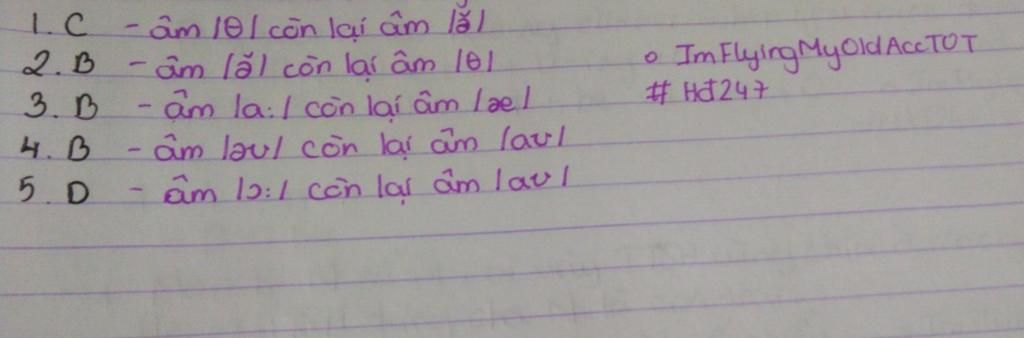 1. C - âm /θ/ còn lại âm /ð/
2. B - âm /ð/ còn lại âm /θ/
3. B - âm /a:/ còn lại âm /æ/
4. B - âm /əʊ/ còn lại âm /aʊ/
5. D - âm /ɔ:/ còn lại âm /aʊ/
o ImFlyingMyOldAccTOT
# Hd247